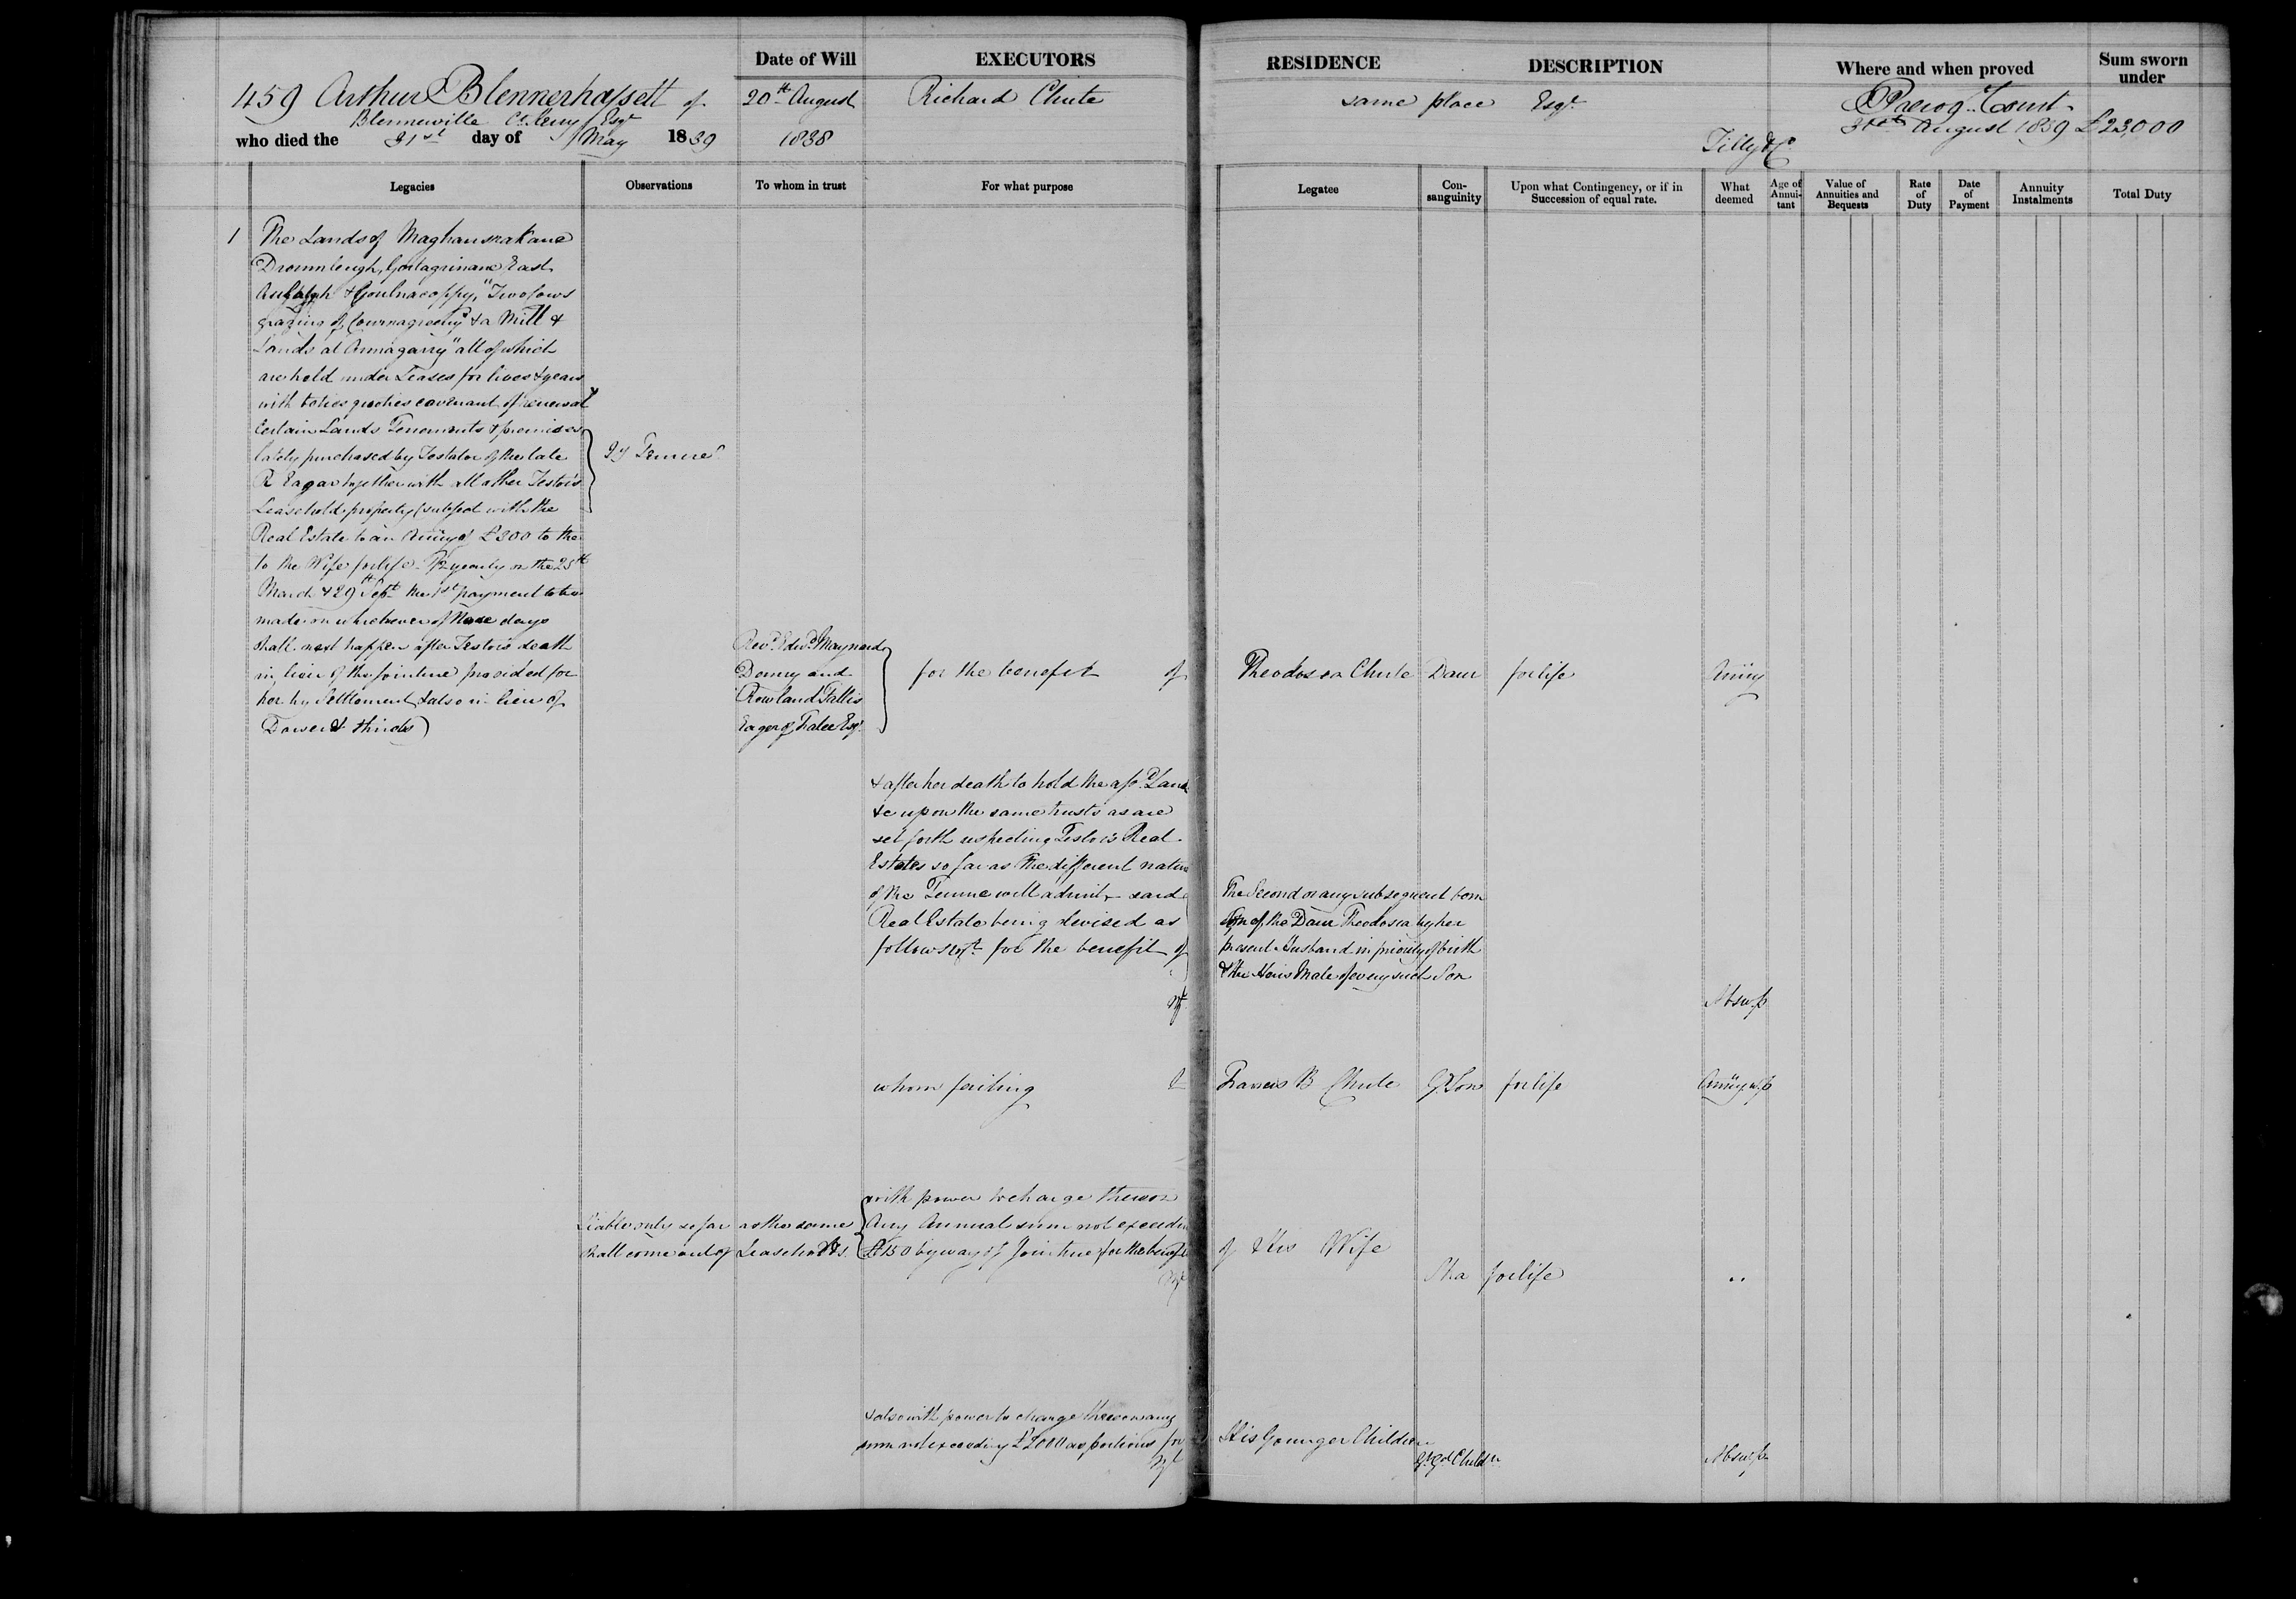 Date of Will
EXECUTORS
RESIDENCE
DESCRIPTION
Where and when proved
Sum sworn under
459 Arthur Blennerhassett of
Blennerville Co. Kerry Esqr
who died the 31st day of May 1839
20th August
1838
Richard Chute
same place Esqr
Tilly & Co
Prerog. Court
August 1839 £23,000
Legacies
Observations
To whom in trust
For what purpose
Legatee
Con-sanguinity
Upon what Contingency, or if in Succession of equal rate.
What deemed
Age of Annui-tant
Value of Annuities and Bequests
Rate of Duty
Date of Payment
Annuity Instalments
Total Duty
1 The Lands of
East
"Two Cows
grazing of & a Mill &
Lands at Annagarry" all of which
are held under Leases for lives & years
with toties quoties covenant of renewal &
Certain Lands Tenements & premises
lately purchased by Testator of the late
R Eagar together with all other Testor's
Leasehold property (subject with the
Real Estate to an Anny of £300 to the
to the Wife for life ½ yearly on the 25th
March & 29th Sept the 1st payment to be
made on whichever of those days
shall next happen after Testors death
in lieu of the jointure provided for
her by Settlement & also in lieu of
Dower & thirds)
Qy Tenure
Revd. Edwd. Maynard
Denny and
Rowland Tallis
Eagar of Tralee Esqr
for the benefit of
Theodosia Chute Daur for life Anny
& after her death to hold the afsd. Lands
&c upon the same trusts as are
set forth respecting Testor's Real
Estates so far as the different nature
of the Tenure will admit said
Real Estate being devised as
follows for the benefit of
The Second or any subsequent born
Son of the Daur Theodosia by her
present Husband in priority of birth
& the Heirs Male of every such Son
Absw/p
whom failing
Francis B Chute G.Son for life Anny w/p
with power to charge thereon
Any Annual sum not exceeding
£150 by way of Jointure for the benefit
Liable only so far as the same
shall come out of Leaseholds.
of His Wife
Stra for life "
& also with power to charge thereon any
sum not exceeding £2000 as portions for
His Younger Children
Gt Gd Childn
Absw/p